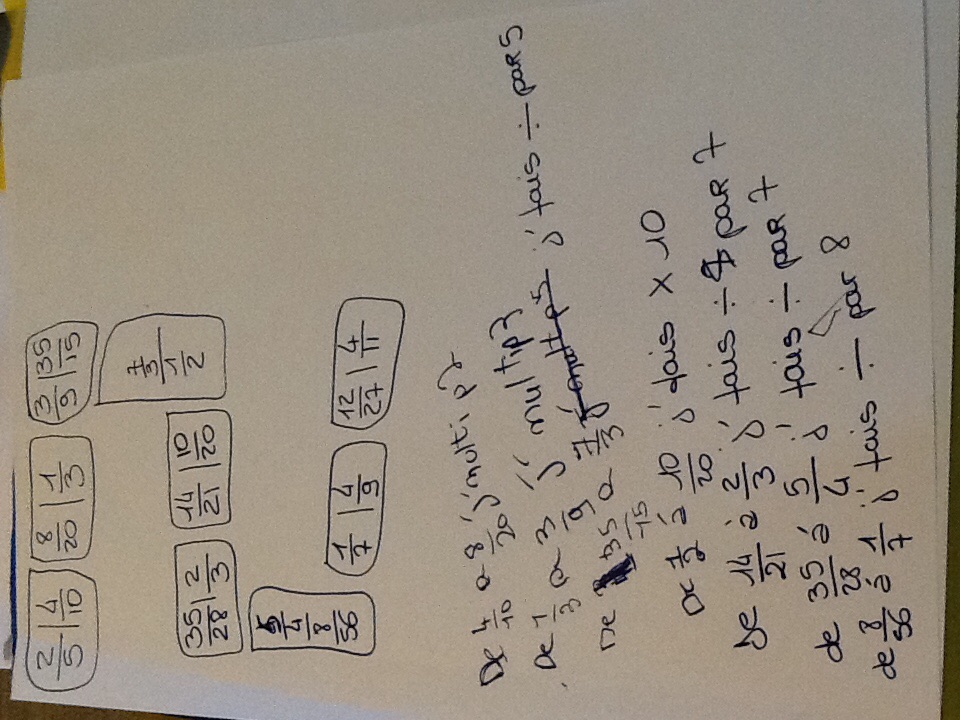 2/5 | 4/10 8/20 | 1/3 3/9 | 35/15
7/3
1/2
35/28 | 2/3 14/21 | 10/20
5/4
8/56
1/7 | 4/9 12/27 | 4/11
De 4/10 a 8/20 j'multi p2
De 1/3 a 3/9 j' multip3
De 35/15 a 7/3 j' mult p5 j' fais ÷ par 5
De 1/2 à 10/20 j' fais × 10
De 14/21 à 2/3 j' fais ÷ par 7
de 35/28 à 5/4 j' fais ÷ par 7
de 8/56 à 1/7 j' fais ÷ par 8